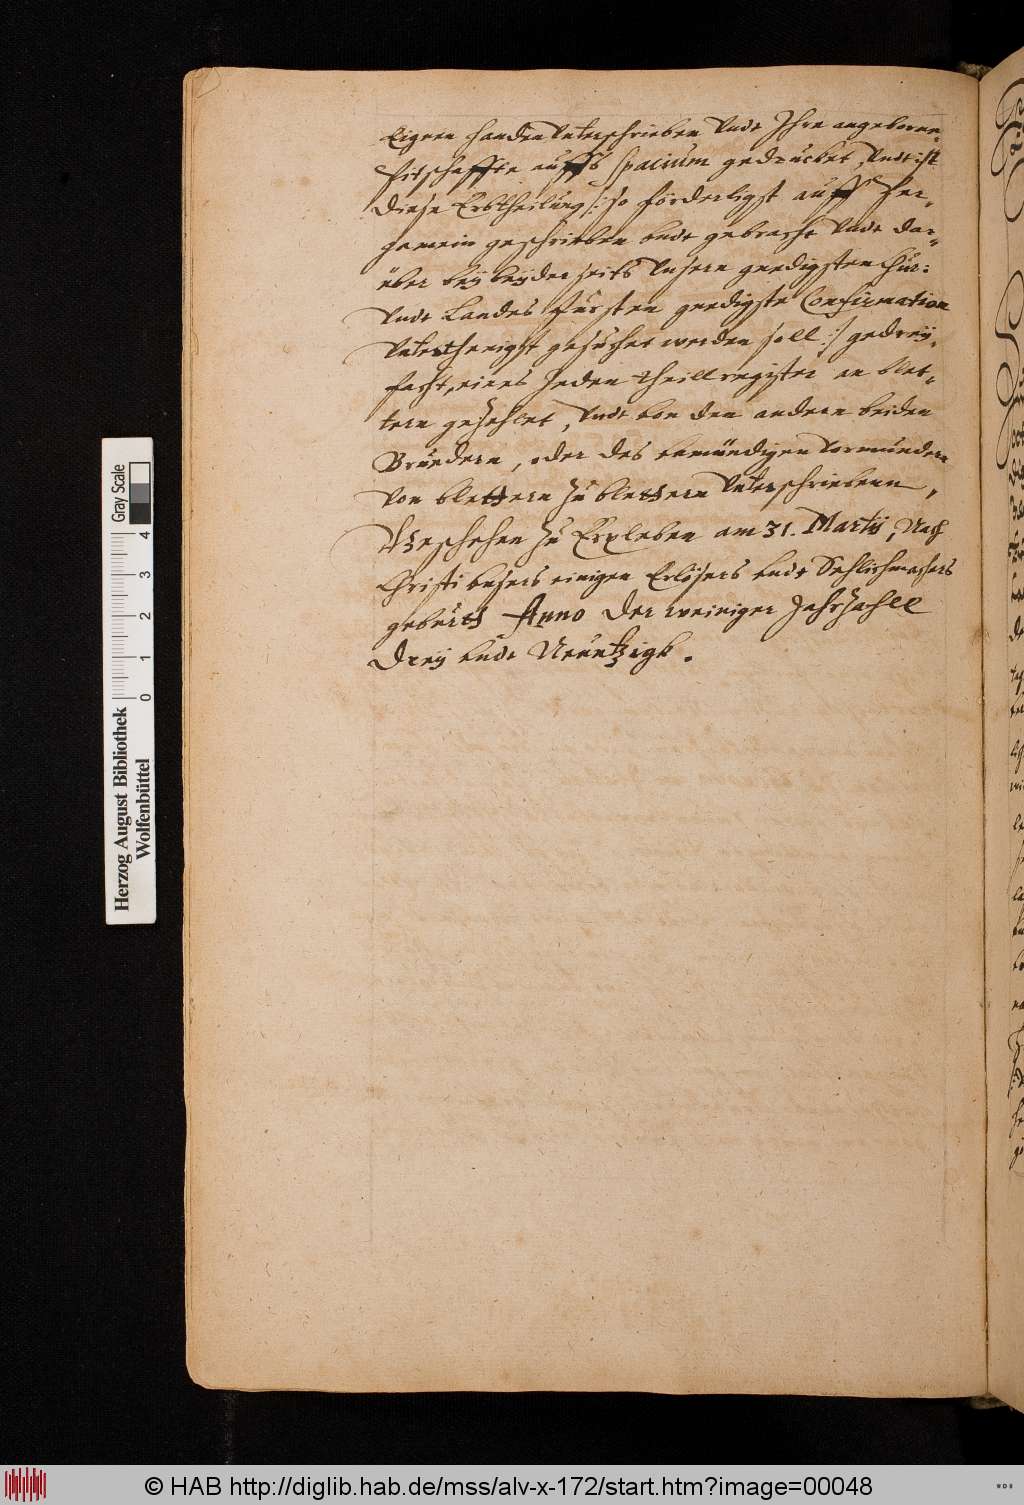 Eignen handen Unterschrieben Undt Ihre angeborne-
Pitschaffte auffs Spacium gedrücket, Undt ist
diese Erbtheilung /: so förderligst auff Per-
gamein geschrieben undt gebracht Undt dar-
über beÿ beÿderseits Unsern gnedigsten Chur:
Undt Landes Fursten gnedigste Confirmation
Unterthenigst gesuchet werden soll :/ gedrey-
facht, eines Jeden theillregister an blet-
tern gezehlet, Undt von den andern beiden
Bruedern, oder des unmündigen Vormündern
Von blettern zu blettern Unterschriebenn,
Geschehen zu Erxleben am 31. Martij, Nach
Christi unsers einigen Erlösers undt Sehlichmachers
geburtt Anno der weiniger Jahrzahll
Dreÿ undt Neuntzigk.
Gray Scale
0 1 2 3 4
Herzog August Bibliothek
Wolfenbüttel
© HAB http://diglib.hab.de/mss/alv-x-172/start.htm?image=00048